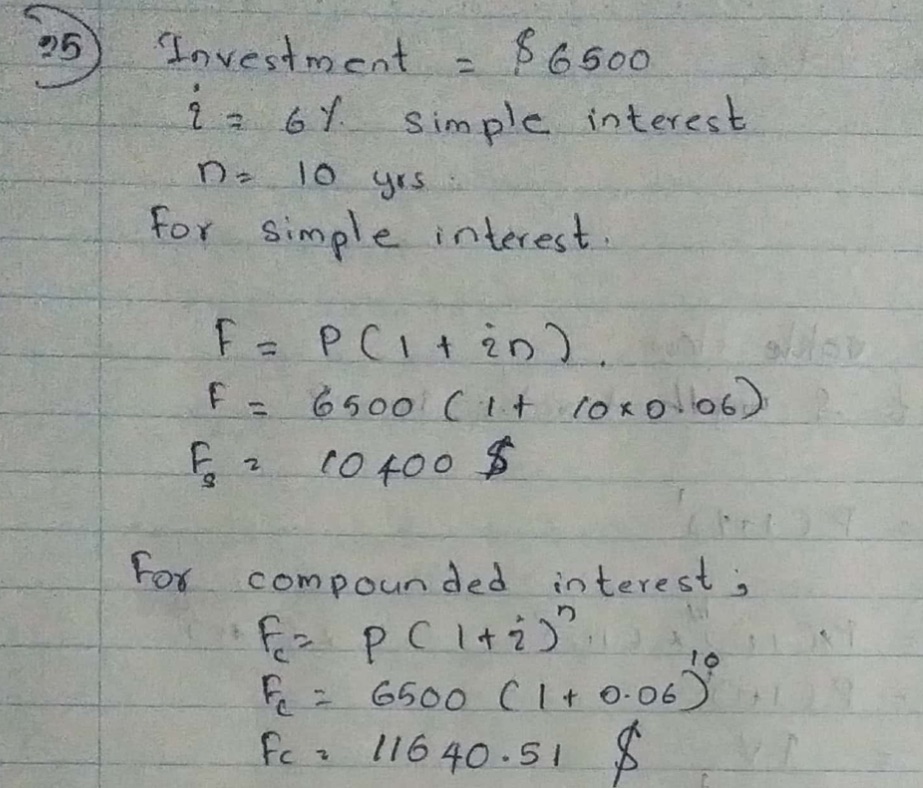 25 Investment = $6500
i = 6% simple interest
n = 10 yrs.
For simple interest.
F = P(1 + in).
F = 6500 (1 + 10×0.06)
Fs = 10400 $
For compounded interest;
Fc = P(1+i)ⁿ
Fc = 6500 (1 + 0.06)¹⁰
Fc = 11640.51 $